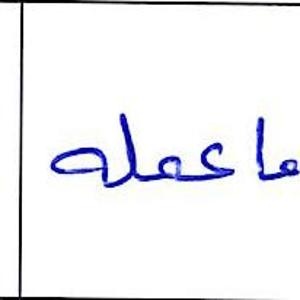 ما عمله